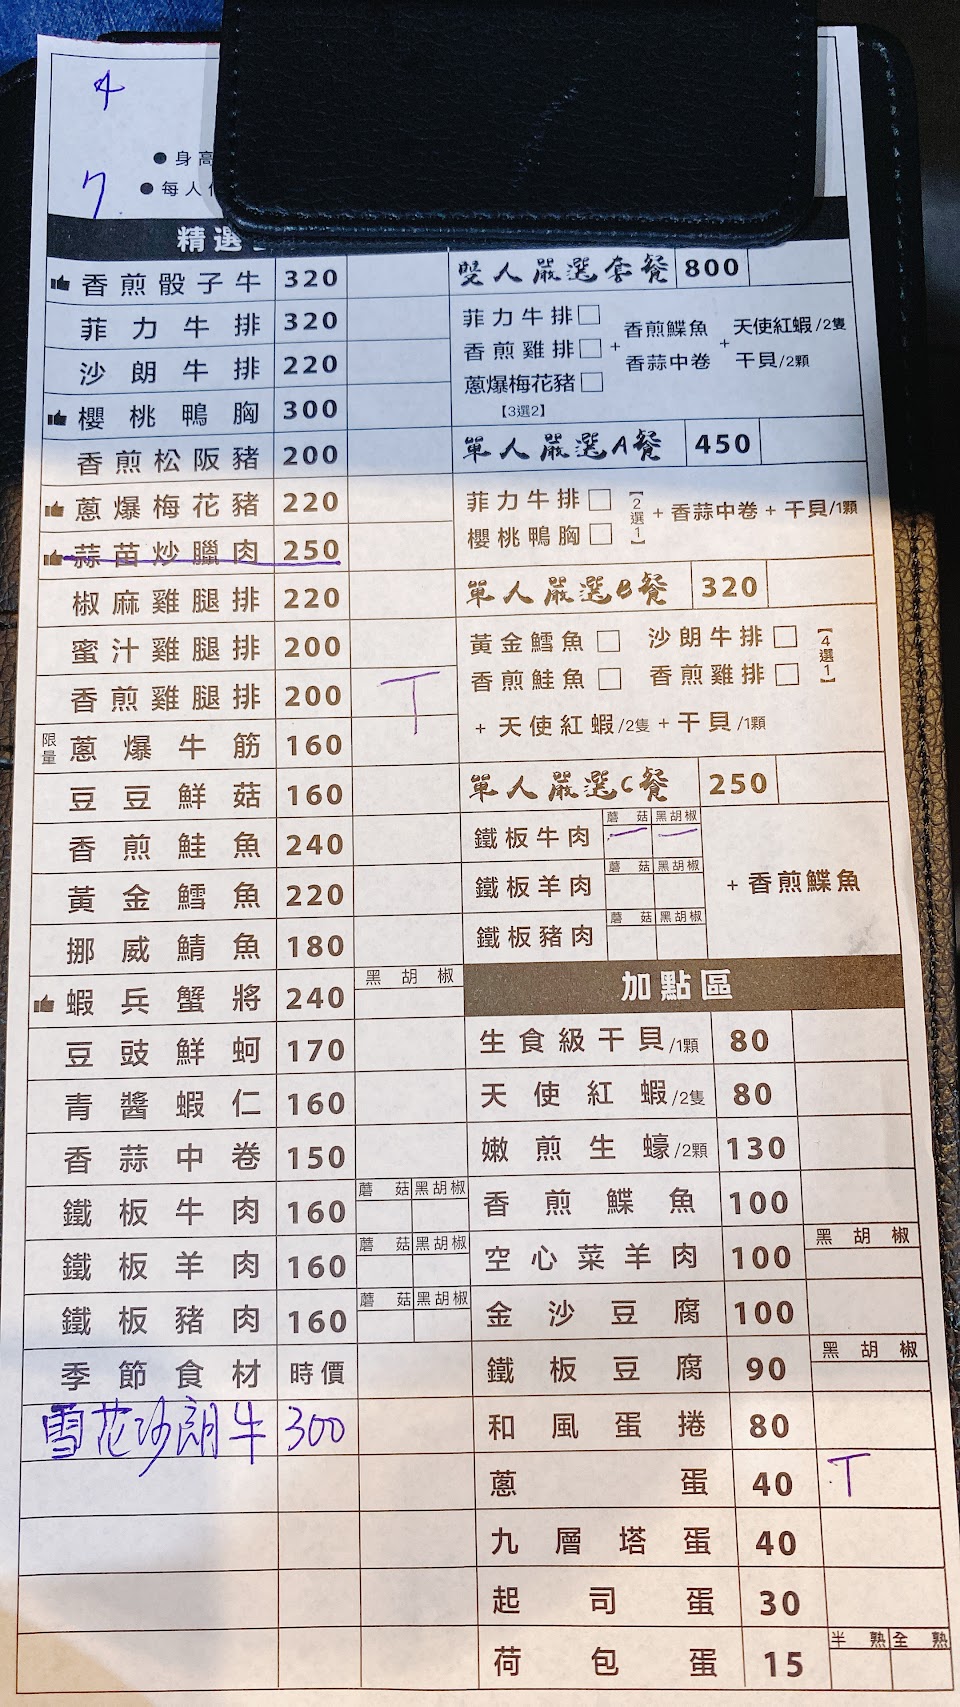 4
● 身高
7
● 每人
精選
香煎骰子牛 320
菲力牛排 320
沙朗牛排 220
櫻桃鴨胸 300
香煎松阪豬 200
蔥爆梅花豬 220
蒜苗炒臘肉 250
椒麻雞腿排 220
蜜汁雞腿排 200
香煎雞腿排 200 T
限量 蔥爆牛筋 160
豆豆鮮菇 160
香煎鮭魚 240
黃金鱈魚 220
挪威鯖魚 180
蝦兵蟹將 240 黑胡椒
豆豉鮮蚵 170
青醬蝦仁 160
香蒜中卷 150
鐵板牛肉 160 蘑菇 黑胡椒
鐵板羊肉 160 蘑菇 黑胡椒
鐵板豬肉 160 蘑菇 黑胡椒
季節食材 時價
雪花沙朗牛 300
雙人嚴選套餐 800
菲力牛排□
香煎雞排□
蔥爆梅花豬□
【3選2】
+ 香煎鰈魚 + 天使紅蝦/2隻
香蒜中卷 干貝/2顆
單人嚴選A餐 450
菲力牛排□
櫻桃鴨胸□
【2選1】 + 香蒜中卷 + 干貝/1顆
單人嚴選B餐 320
黃金鱈魚□ 沙朗牛排□
香煎鮭魚□ 香煎雞排□
【4選1】
+ 天使紅蝦/2隻 + 干貝/1顆
單人嚴選C餐 250
鐵板牛肉 蘑菇 黑胡椒
鐵板羊肉 蘑菇 黑胡椒
鐵板豬肉 蘑菇 黑胡椒
+ 香煎鰈魚
加點區
生食級干貝/1顆 80
天使紅蝦/2隻 80
嫩煎生蠔/2顆 130
香煎鰈魚 100
空心菜羊肉 100 黑胡椒
金沙豆腐 100
鐵板豆腐 90 黑胡椒
和風蛋捲 80
蔥蛋 40 T
九層塔蛋 40
起司蛋 30
荷包蛋 15 半熟 全熟